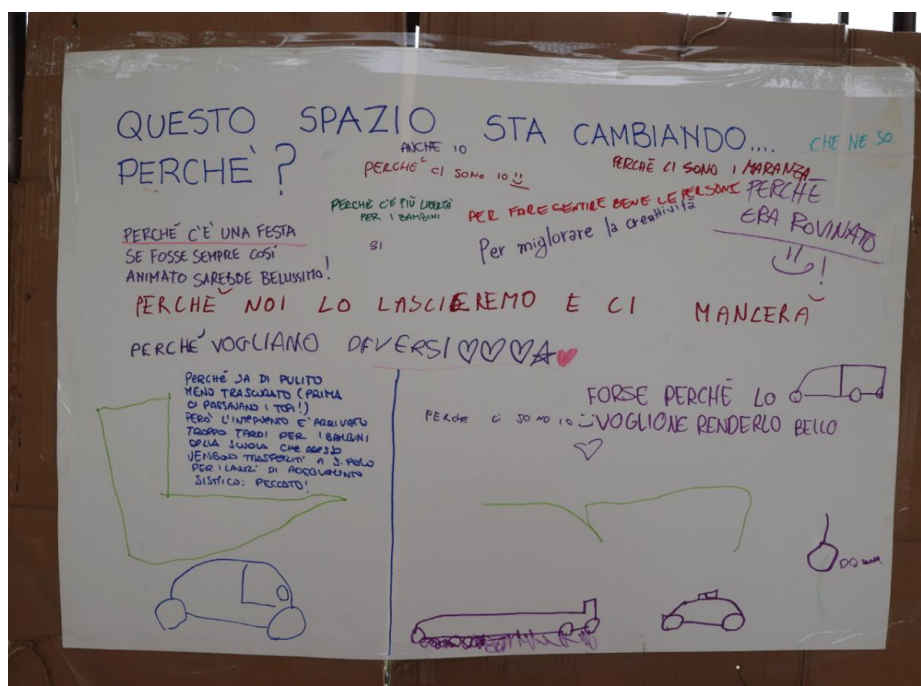 QUESTO SPAZIO STA CAMBIANDO....
PERCHÈ?
CHE NE SO.
ANCHE IO
PERCHÈ CI SONO IO
PERCHÈ CI SONO I MARANZA
PERCHÉ C'È PIÙ LIBERTÀ
PER I BAMBINI
SI
PER FARE SENTIRE BENE LE PERSONE
Per miglorare la creattività
PERCHÈ
ERA ROVINATO
!
PERCHÉ C'È UNA FESTA
SE FOSSE SEMPRE COSÍ
ANIMATO SAREBBE BELUSSIMO!
PERCHÈ NOI LO LASCIEREMO E CI MANCERÀ
PERCHÉ VOGLIAMO DIVERSI
PERCHÉ SA DI PULITO
MENO TRASCURATO (PRIMA
CI PASSAVANO I TOPI!)
PERÒ L'INTERVENTO E' ARRIVATO
TROPPO TARDI PER I BAMBINI
DELLA SCUOLA CHE ADESSO
VENGONO TRASFERITI A S. POLO
PER I LAVORI DI ADEGUAMENTO
SISMICO: PECCATO!
FORSE PERCHÈ LO
VOGLIONE RENDERLO BELLO
PERCHE CI SONO IO